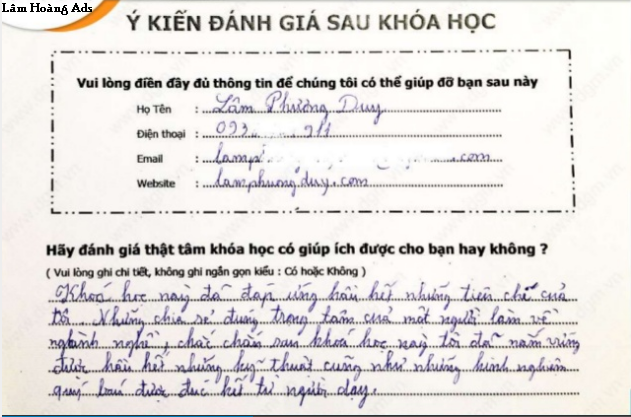 Lâm Hoàng Ads
Ý KIẾN ĐÁNH GIÁ SAU KHÓA HỌC
Vui lòng điền đầy đủ thông tin để chúng tôi có thể giúp đỡ bạn sau này
Họ Tên : Lâm Phương Duy
Điện thoại :
Email : .com
Website : lamphuongduy.com
Hãy đánh giá thật tâm khóa học có giúp ích được cho bạn hay không ?
( Vui lòng ghi chi tiết, không ghi ngắn gọn kiểu : Có hoặc Không )
Khoá học này đã đáp ứng hầu hết những tiêu chế của
tôi. Những chia sẻ đúng trọng tâm của một người làm về
ngành nghề, chắc chắn sau khoá học này tôi đã nắm vững
được hầu hết những kỹ thuật cũng như những kinh nghiệm
quý báu được đúc kết từ người dạy.